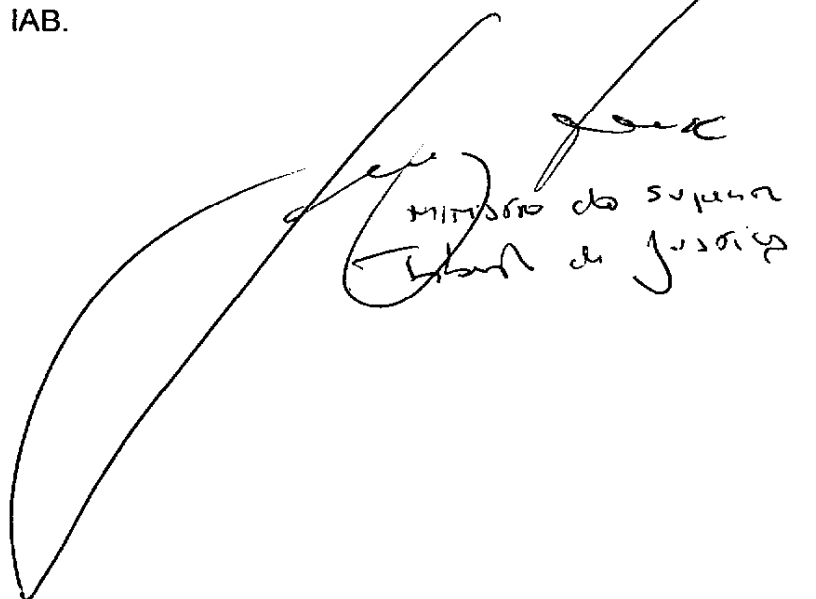 IAB.
Ministro do Superior
Tribunal de Justiça